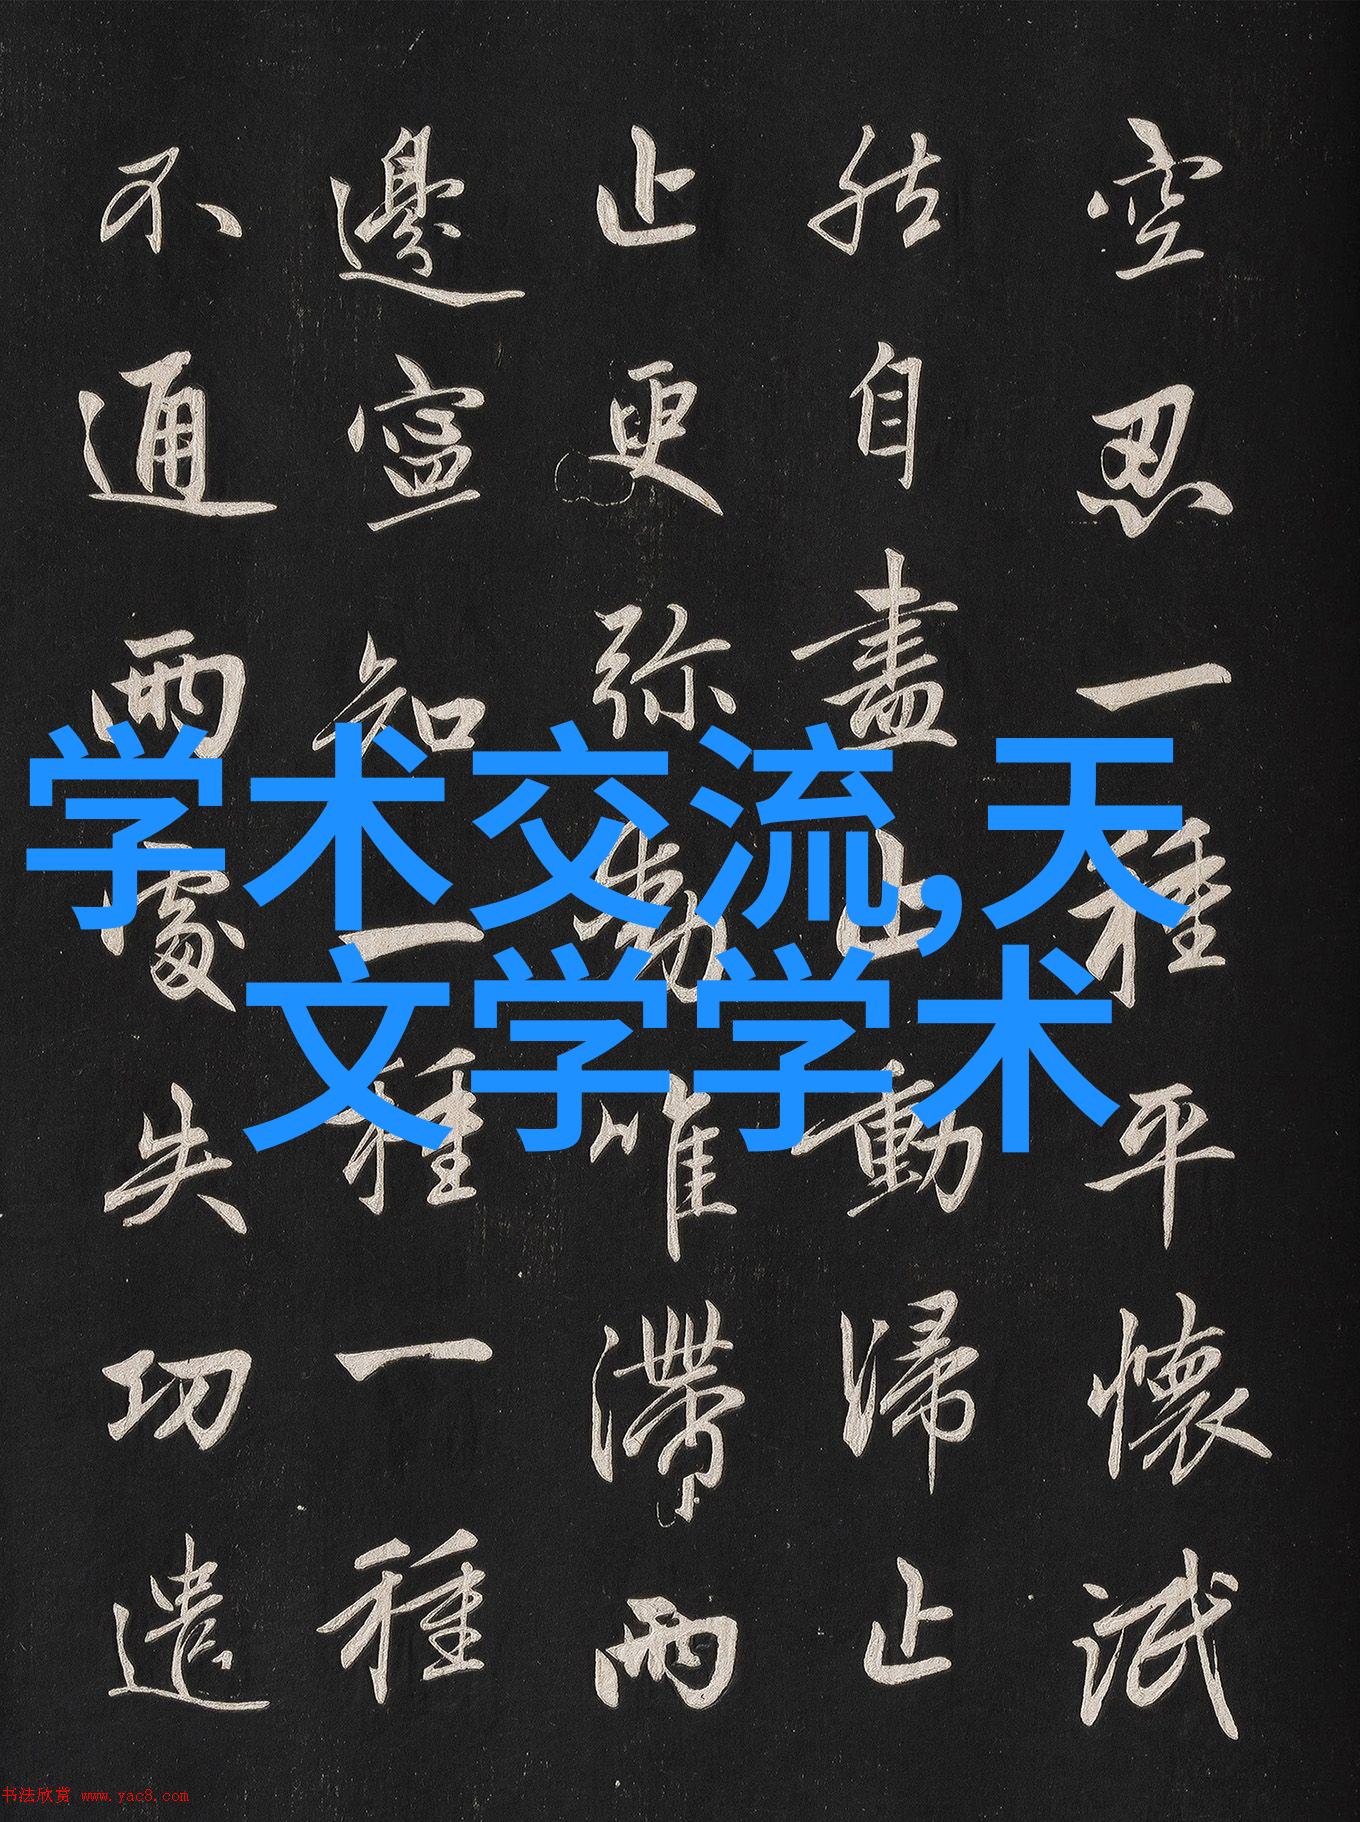 空忍一種平懷泯
然自盡止動歸止
止更弥動唯滯兩
邊寧知一種一種
不通兩處失功遣
学术交流,天
文学学术
书法欣赏 www.yac8.com